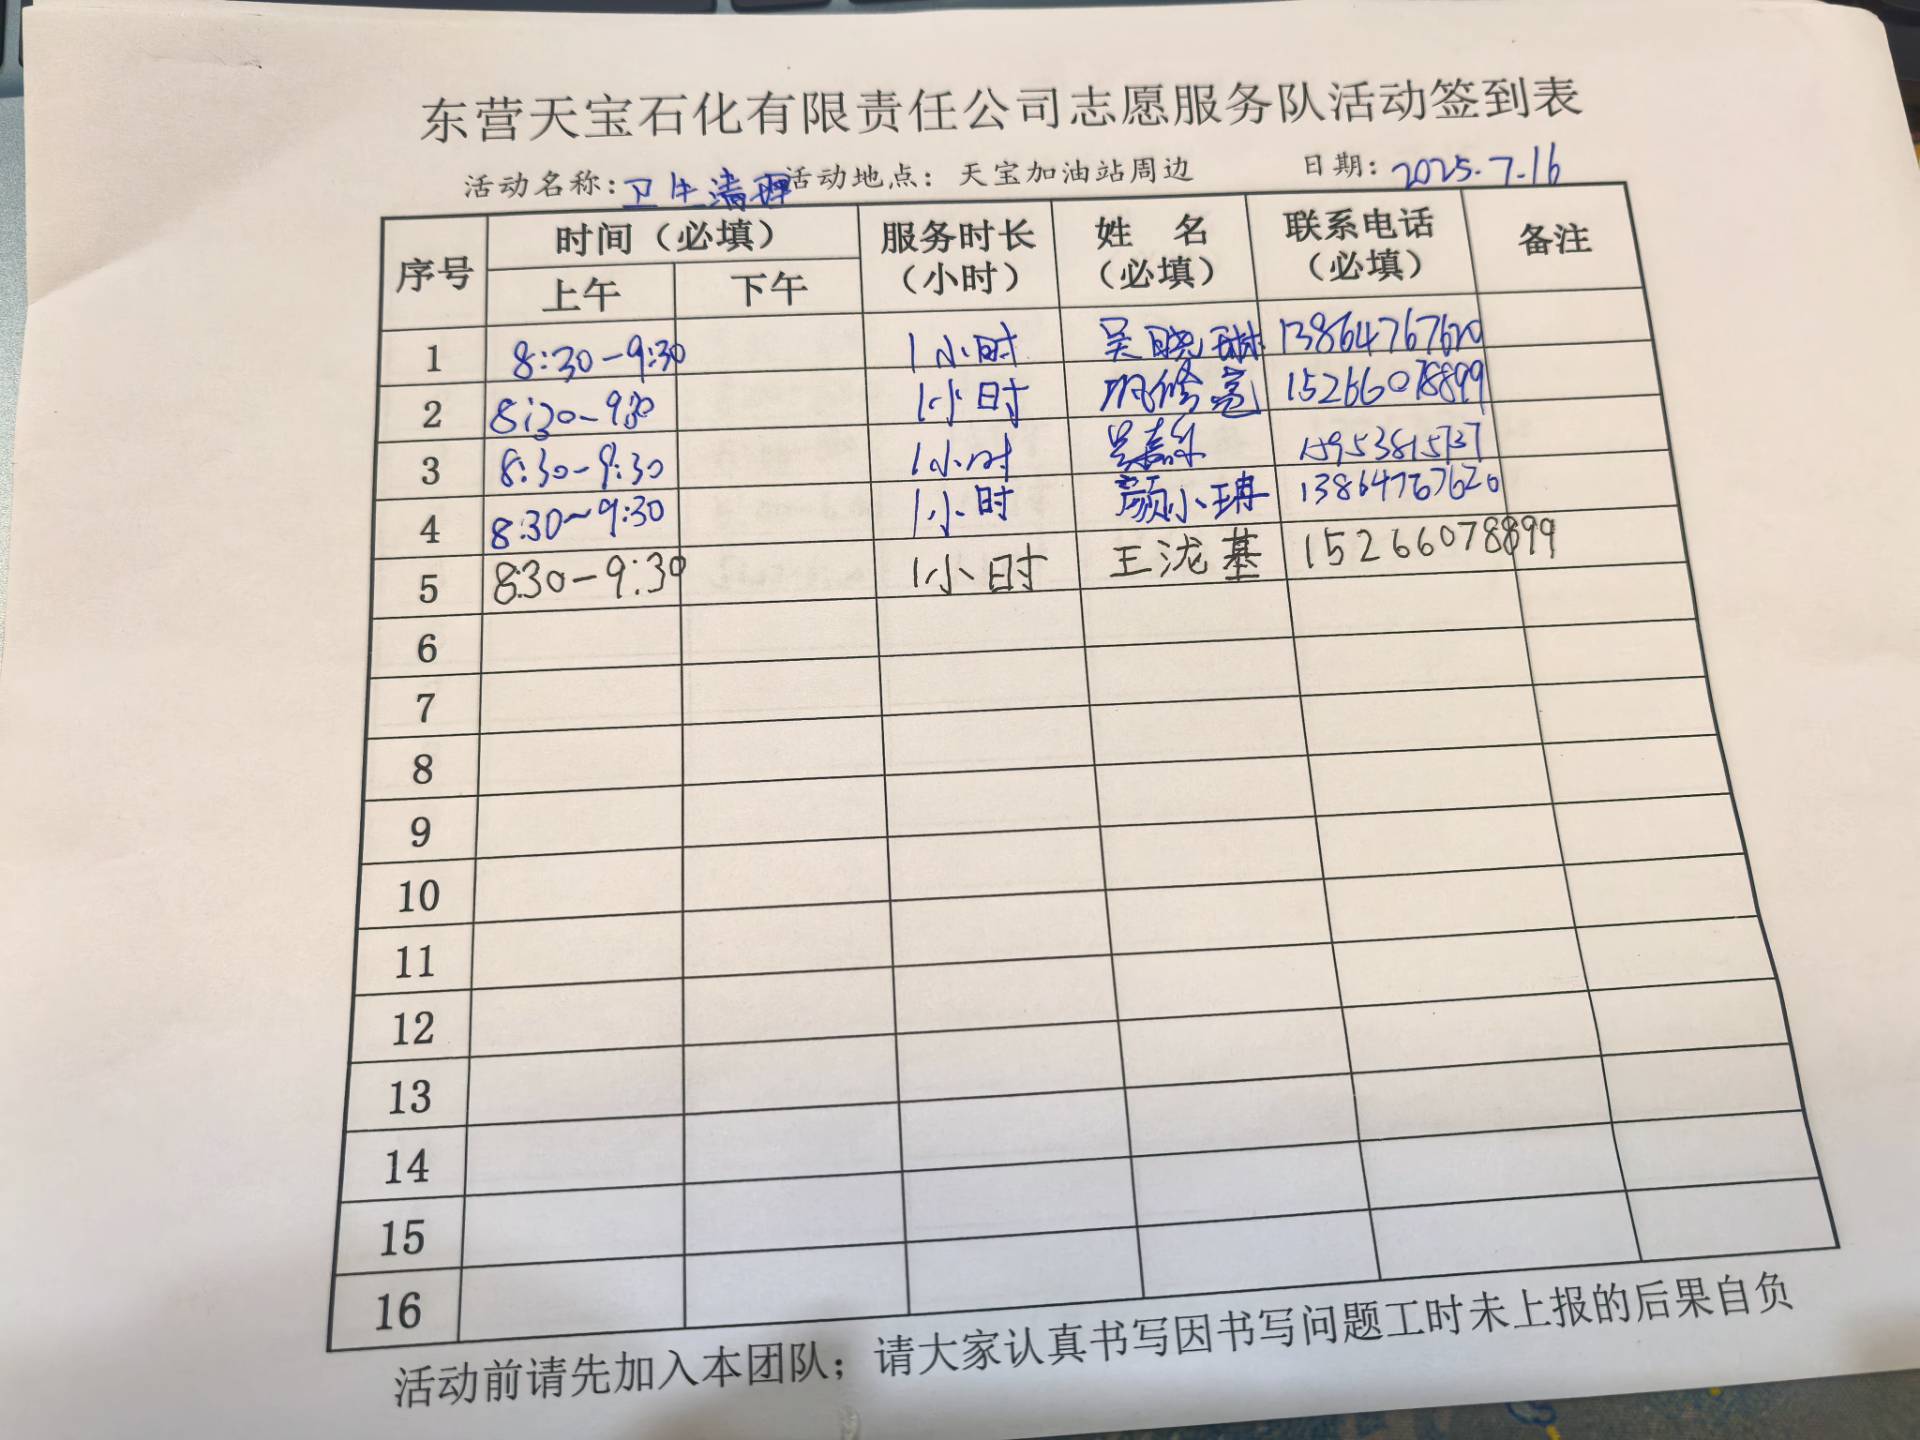 东营天宝石化有限责任公司志愿服务队活动签到表
活动名称：卫生清理 活动地点：天宝加油站周边 日期：2025.7.16
序号 时间（必填） 服务时长（小时） 姓 名（必填） 联系电话（必填） 备注
上午 下午
1 8:30-9:30 1小时 吴晓琳 13864767620
2 8:30-9:30 1小时 修亮 15266078899
3 8:30-9:30 1小时 15953815737
4 8:30~9:30 1小时 颜小珃 13864767620
5 8:30-9:30 1小时 王泷基 15266078899
6
7
8
9
10
11
12
13
14
15
16
活动前请先加入本团队；请大家认真书写因书写问题工时未上报的后果自负